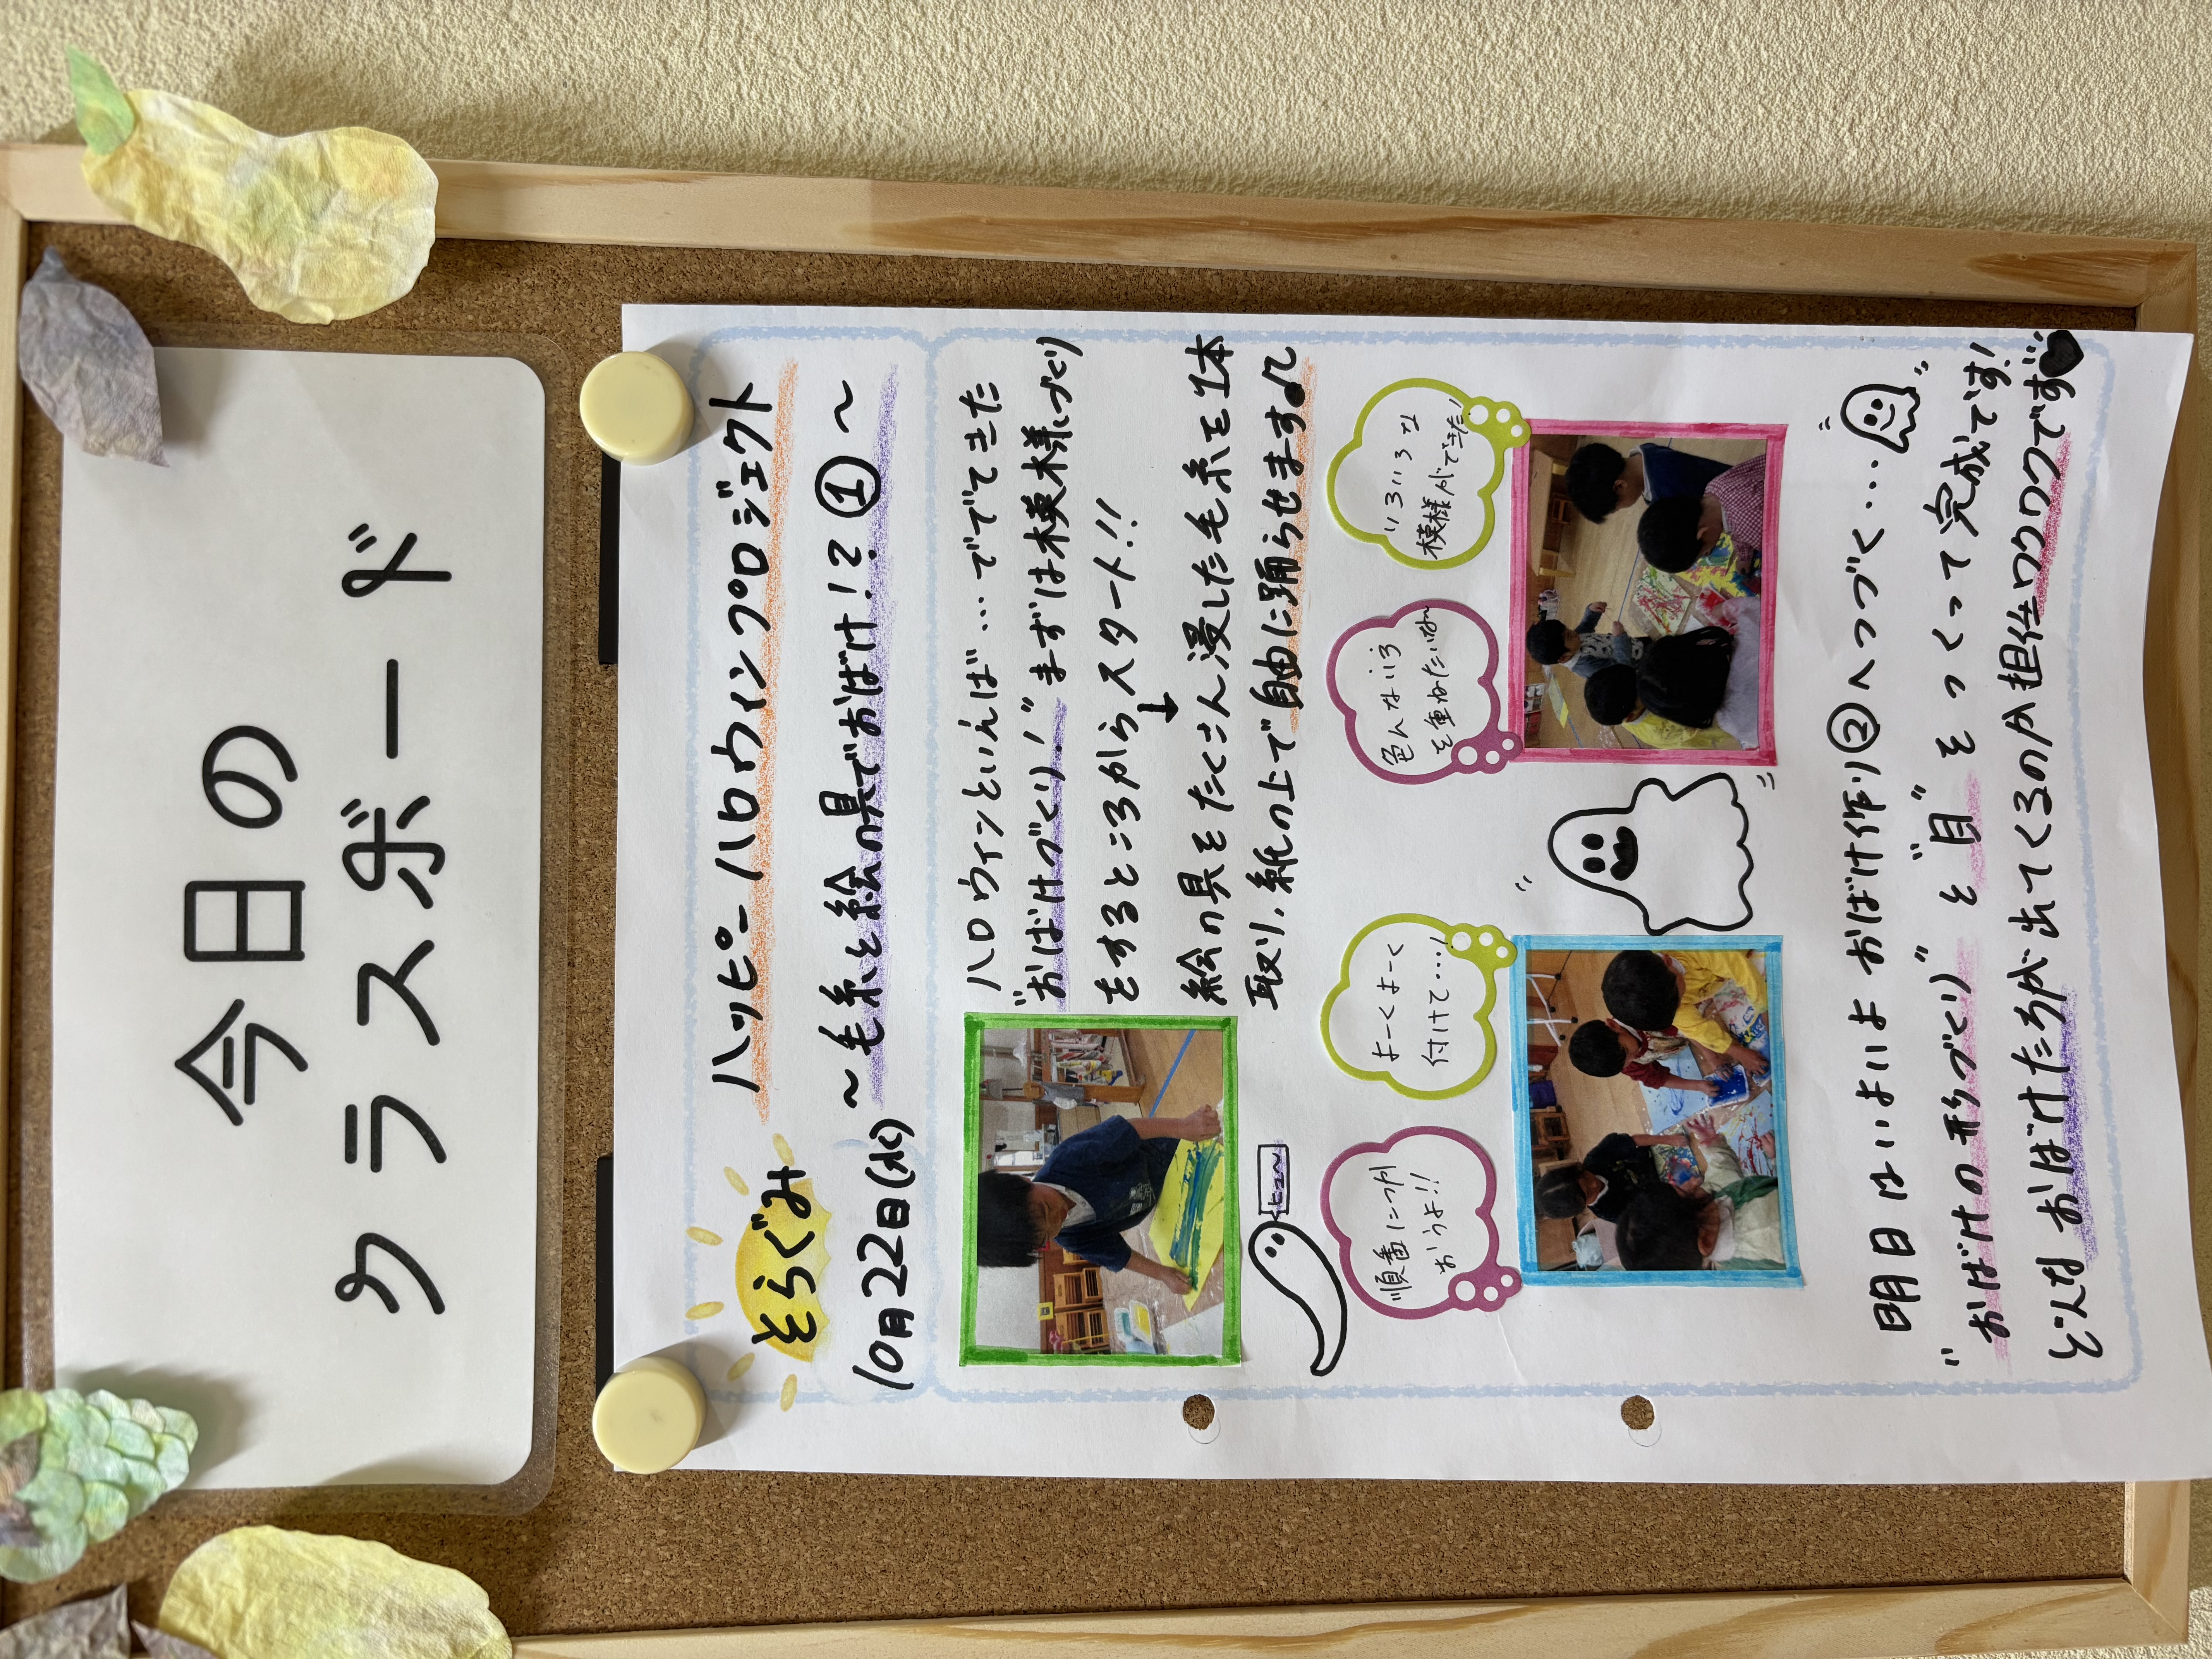 今日の
クラスボード
そらぐみ
ハッピーハロウィンプロジェクト
10月22日(水)
～毛糸と絵の具でおばけ!?①～
ハロウィンといえば…でででてきた
"おばけづくり!"まずは模様づくり
をするところからスタート!!
絵の具をたくさん浸した毛糸を1本
取り、紙の上で自由に踊らせます♪
ヒュ〜
順番につかおうよ!!
よーくよーく付けて…!
色んないろを重ねたいな〜
いろいろな模様ができた!
明日はいよいよおばけ作り②へつづく…
"おばけの形づくり"と"目"をつくって完成です!
どんなおばけたちが出てくるのか担任ワクワクです♥